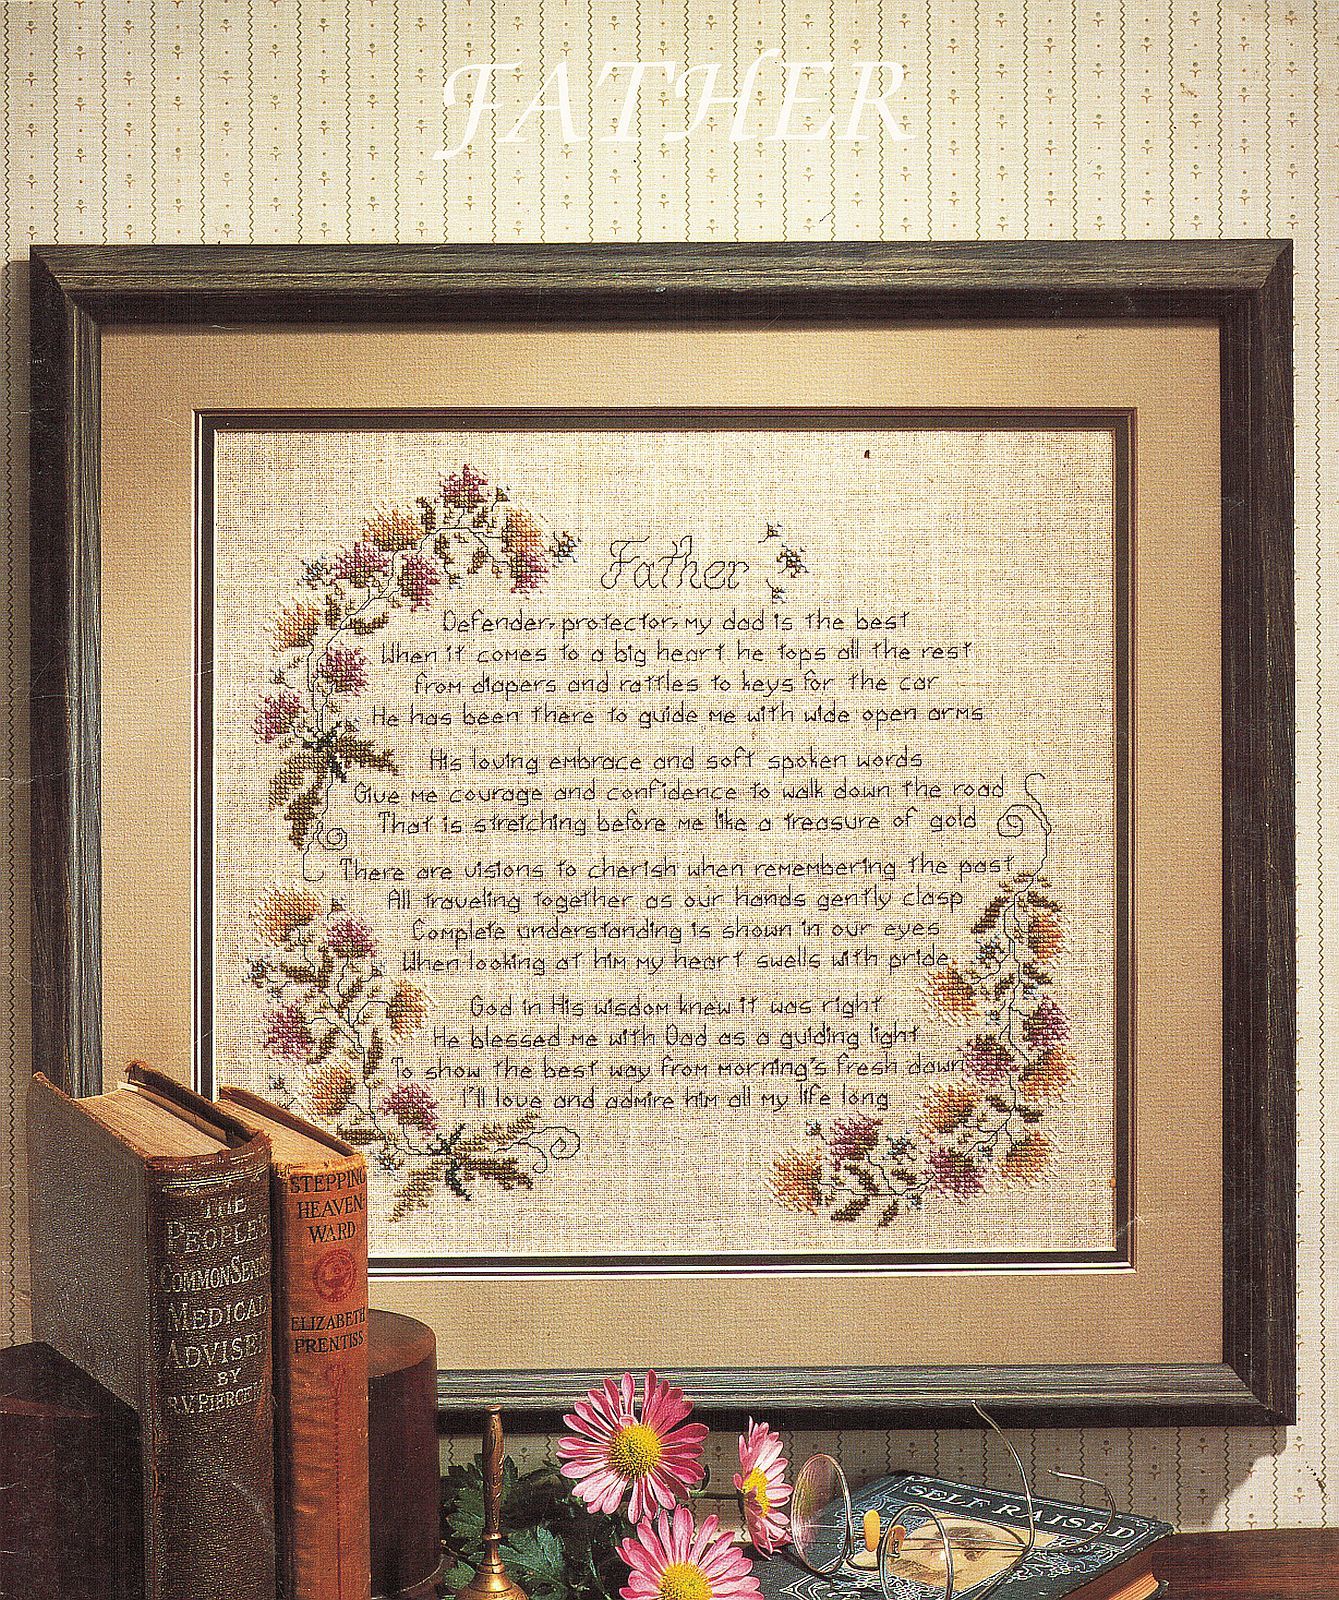 FATHER
Father
Defender, protector, my dad is the best
When it comes to a big heart he tops all the rest
from diapers and rattles to keys for the car
He has been there to guide me with wide open arms
His loving embrace and soft spoken words
Give me courage and confidence to walk down the road
That is stretching before me like a treasure of gold
There are visions to cherish when remembering the past
All traveling together as our hands gently clasp
Complete understanding is shown in our eyes
When looking at him my heart swells with pride
God in His wisdom knew it was right
He blessed me with Dad as a guiding light
To show the best way from morning's fresh dawn
I'll love and admire him all my life long
THE
PEOPLE'S
COMMON SENSE
MEDICAL
ADVISER
BY
R.V. PIERCE
STEPPING
HEAVEN-
WARD
ELIZABETH
PRENTISS
SELF RAISED